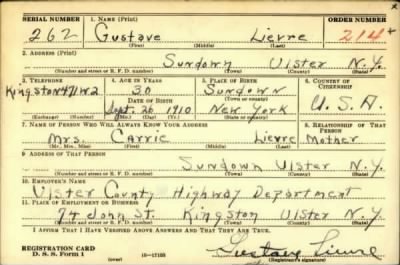 SERIAL NUMBER 1. NAME (Print) ORDER NUMBER
262 Gustave Lievre 214
(First) (Middle) (Last)
2. ADDRESS (Print)
Sundown Ulster N.Y.
(Number and street or R. F. D. number) (Town) (County) (State)
3. TELEPHONE 4. AGE IN YEARS 5. PLACE OF BIRTH 6. COUNTRY OF CITIZENSHIP
Kingston 30 Sundown
DATE OF BIRTH (Town or county)
Sept. 26 1910 New York U.S.A.
(Exchange) (Number) (Mo.) (Day) (Yr.) (State or country)
7. NAME OF PERSON WHO WILL ALWAYS KNOW YOUR ADDRESS 8. RELATIONSHIP OF THAT PERSON
Mrs. Carrie Lievre Mother
(Mr., Mrs., Miss) (First) (Middle) (Last)
9. ADDRESS OF THAT PERSON
Sundown Ulster N.Y.
(Number and street or R. F. D. number) (Town) (County) (State)
10. EMPLOYER'S NAME
Ulster County Highway Department
11. PLACE OF EMPLOYMENT OR BUSINESS
74 John St. Kingston Ulster N.Y.
(Number and street or R. F. D. number) (Town) (County) (State)
I AFFIRM THAT I HAVE VERIFIED ABOVE ANSWERS AND THAT THEY ARE TRUE.
REGISTRATION CARD
D. S. S. Form 1 (over) 16—17105 Gustave Lievre
(Registrant's signature)